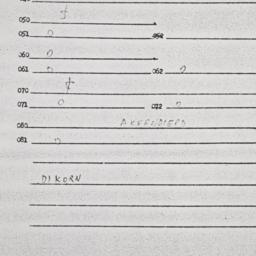 050
051 0 052
060 0
061 0 062 0
070
071 0 072 0
080
081 0
DIKORN